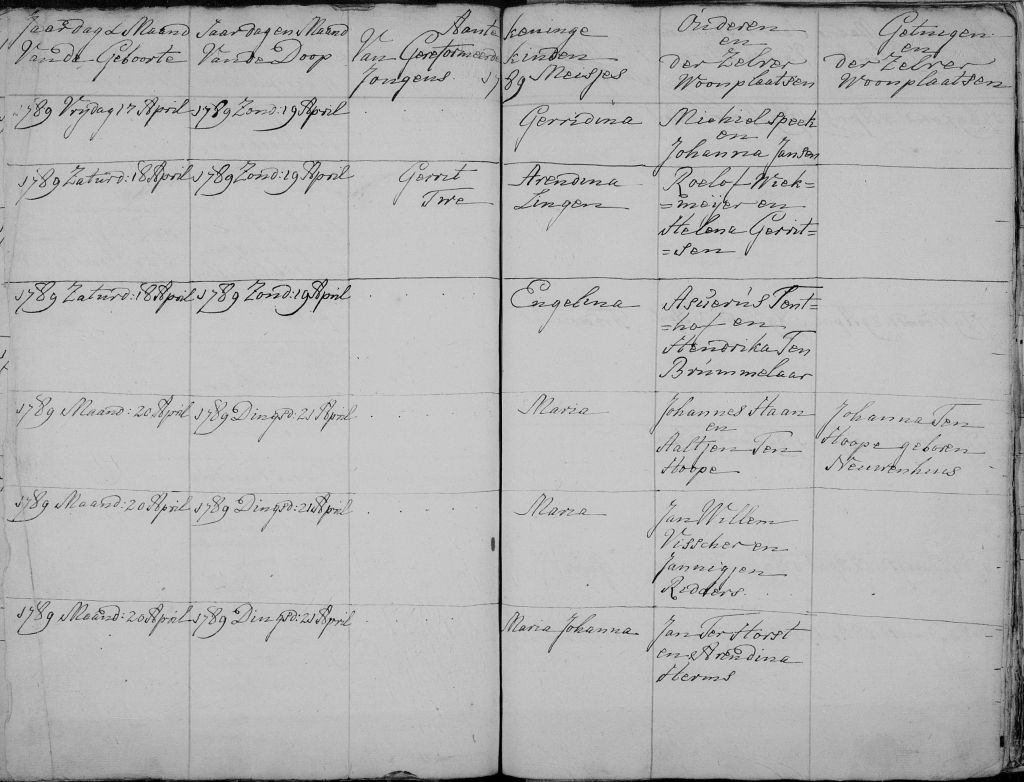 Jaar dag & Maand
Van de Geboorte
Jaar dag en Maand
Van de Doop
Aante keninge
Van Gereformeerde kinden
Jongens 1789 Meisjes
Ouderen
en
der Zelver
Woonplaatsen
Getuigen
en
der Zelver
Woonplaatsen
1789 Vrijdag 17 April
1789 Zond: 19 April
Gerridina
Michiel Speek
en
Johanna Jansen
1789 Zaturd: 18 April
1789 Zond: 19 April
Gerrit
Twe
Arendina
Lingen
Roelof Wiek=
=meyer en
Helena Gerrit=
=sen
1789 Zaturd: 18 April
1789 Zond: 19 April
Engelina
Asuerus Tent=
=hof en
Hendrika Ten
Brummelaar
1789 Maand: 20 April
1789 Dingsd: 21 April
Maria
Johannes Haan
en
Aaltjen Ten
Hoope
Johanna Ten
Hoope geboren
Neuwenhuus
1789 Maand: 20 April
1789 Dingsd: 21 April
Maria
Jan Willem
Visscher en
Jannigjen
Ridders
1789 Maand: 20 April
1789 Dingsd: 21 April
Maria Johanna
Jan Ter Horst
en Arendina
Herms